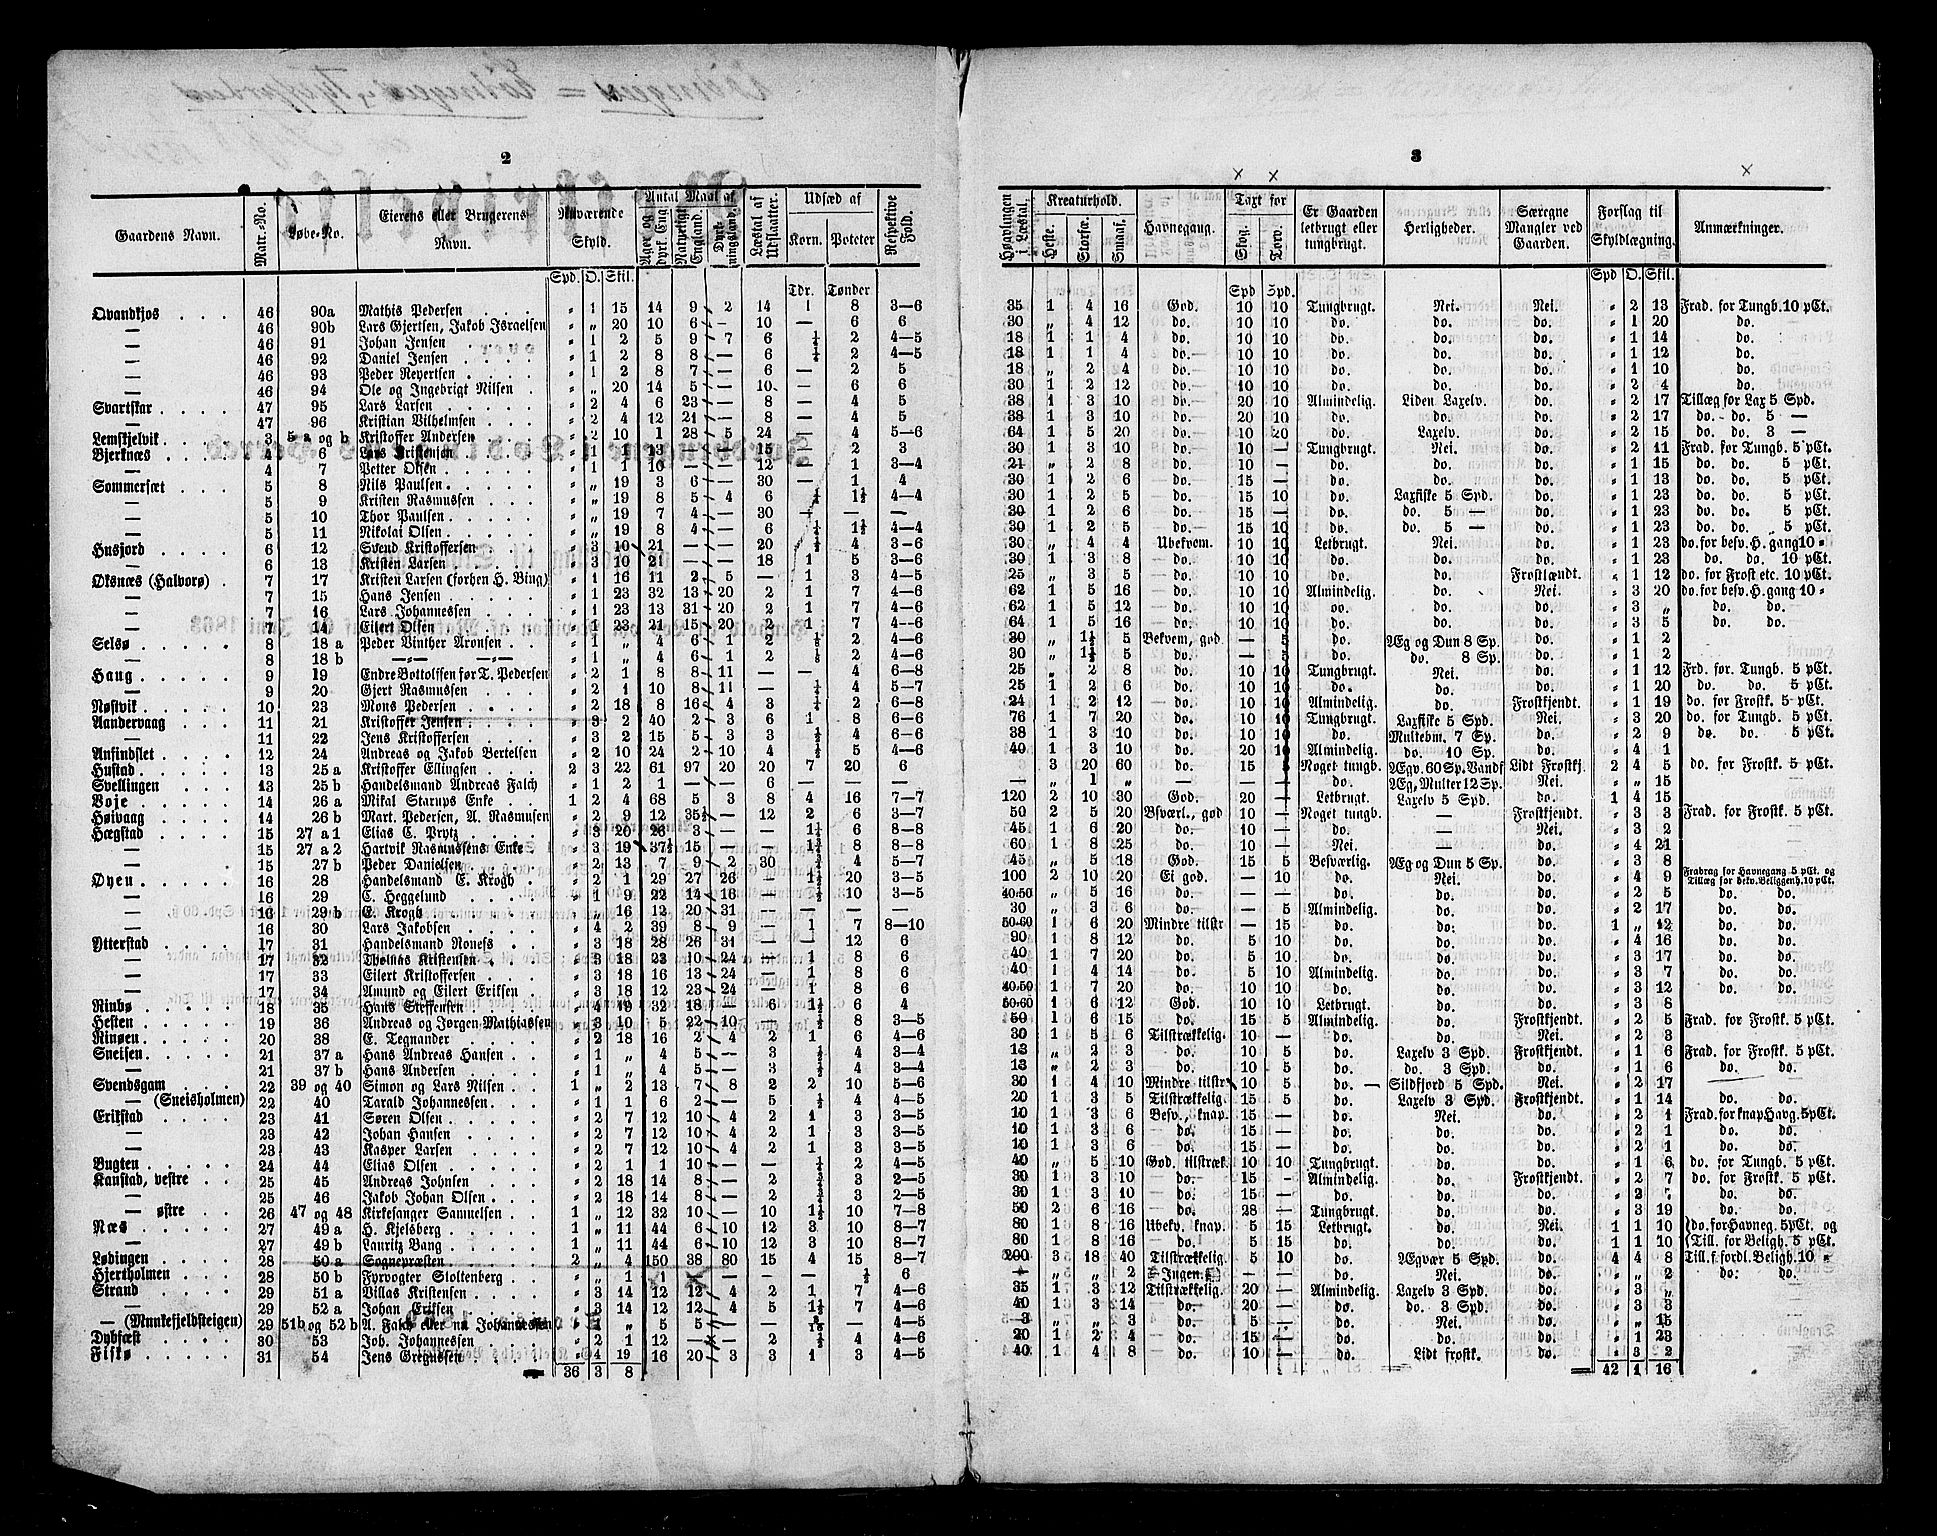 2
Gaardens Navn. | Matr.-No. | Løbe-No. | Eierens eller Brugerens Navn. | Nuværende Skyld. | Antal Maal af | Ager og dyrk. Eng | Naturlig England. | Dyrkningsland. | Læstal af Udslaatter. | Udsæd af | Korn. | Poteter | Respektive Fold.
Spd. | O. | Skil. | Tdr. | Tønder
Qvandkjos . . . | 46 | 90a | Mathis Pedersen | " | 1 | 15 | 14 | 9 | 2 | 14 | 1 | 8 | 3—6
— | 46 | 90b | Lars Gjertsen, Jakob Israelsen | " | " | 20 | 10 | 6 | — | 10 | — | 6 | 6
— | 46 | 91 | Johan Jensen | " | 1 | 2 | 5 | 9 | 7 | 6 | ½ | 2 | 4—5
— | 46 | 92 | Daniel Jensen | " | 1 | 2 | 8 | 8 | — | 6 | ½ | 2 | 4—5
— | 46 | 93 | Peder Repertsen | " | 1 | 2 | 8 | 7 | — | 6 | — | 2 | 5
— | 46 | 94 | Ole og Ingebrigt Nilsen | " | " | 20 | 14 | 5 | — | 10 | — | 6 | 6
Svartskar | 47 | 95 | Lars Larsen | " | 2 | 4 | 6 | 23 | — | 8 | — | 4 | 5
— | 47 | 96 | Kristian Vilhelmsen | " | 2 | 4 | 12 | 21 | — | 8 | — | 4 | 5
Lemskjelvik | 3 | 5 a og b | Kristoffer Andersen | " | 2 | 10 | 1 | 28 | 5 | 24 | — | 4 | 5—6
Bjerknæs | 4 | 6 | Lars Kristensen | " | 1 | 1 | 13 | — | — | 15 | — | 2 | 3
— | 4 | 7 | Petter Olsen | " | 1 | 1 | 10 | — | — | 12 | — | 1 | 3—4
Sommersæt | 5 | 8 | Nils Paulsen | " | " | 19 | 3 | 6 | — | 30 | — | 1 | 4
— | 5 | 9 | Kristen Rasmussen | " | " | 19 | 8 | 5 | 4 | 6 | ¼ | 1½ | 4—4
— | 5 | 10 | Thor Paulsen | " | " | 19 | 7 | 4 | — | 30 | — | — | —
— | 5 | 11 | Nikolai Olsen | " | " | 19 | 8 | 4 | — | 6 | ½ | 1½ | 4—4
Husjord | 6 | 12 | Svend Kristoffersen | " | 3 | 10 | 21 | — | — | 20 | ½ | 4 | 3—6
— | 6 | 13 | Kristen Larsen | " | 3 | 10 | 21 | — | — | 18 | 1 | 5 | 3—6
Oksnæs (Halvorø) | 7 | 17 | Kristen Larsen (forhen H. Bing) | " | 1 | 16 | 11 | 2 | 5 | — | 1 | 3 | 4—5
— | 7 | 15 | Hans Jensen | " | 1 | 23 | 32 | 13 | 20 | 2 | 1 | 7 | 4—6
— | 7 | 16 | Lars Johannessen | " | 1 | 23 | 13 | 31 | 20 | 2 | 1 | 7 | 4—6
— | 7 | 14 | Eilert Olsen | " | 1 | 23 | 21 | 15 | 20 | 2 | 1 | 7 | 4—6
Selsø | 8 | 18 a | Peder Vinther Aronsen | " | 1 | " | 4 | 6 | 1 | 2 | | 2 | 4—6
— | 8 | 18 b | —"— —"— | " | 1 | " | 4 | 6 | 1 | 2 | | 2 | 4—6
Haug | 9 | 19 | Endre Bottolfsen før T. Pedersen | " | 2 | 1 | 8 | 8 | 11 | — | — | 4 | 6—8
— | 9 | 20 | Gjert Rasmussen | " | 2 | 1 | 10 | 8 | 11 | — | | 4 | 5—7
Nøstvik | 10 | 23 | Mons Pedersen | " | 2 | 18 | 8 | 16 | 4 | 3 | | 2 | 6—8
Aandervaag | 11 | 21 | Kristoffer Jensen | " | 3 | 2 | 40 | 2 | 3 | 6 | 1 | 8 | 4—6
— | 11 | 22 | Jens Kristoffersen | " | 3 | 2 | 15 | 5 | 3 | 3 | ½ | 4 | 6—6
Anfindslet | 12 | 24 | Andreas og Jakob Bertelsen | " | 2 | 10 | 24 | 2 | 10 | 4 | ½ | 5 | 4—6
Hustad | 13 | 25 a | Kristoffer Ellingsen | 2 | 3 | 22 | 61 | 97 | 20 | 20 | 7 | 20 | 6
Svellingen | 13 | 25 b | Handelsmand Andreas Falch | " | 1 | 2 | 1 | — | — | 6 | — | — | —
Voje | 14 | 26 a | Mikal Starups Enke | 1 | 2 | 4 | 68 | 5 | 3 | 8 | 4 | 16 | 7—7
Høivaag | 14 | 26 b | Mart. Pedersen, A. Rasmusen | " | 2 | 9 | 12 | 35½ | — | 12 | 2 | 6 | 3—7
Hægstad | 15 | 27 a 1 | Elias C. Prytz | " | 3 | 20 | 26 | 3 | — | — | | 6 | 8—8
— | 15 | 27 a 2 | Hartvik Rasmussens Enke | " | 3 | 19 | 37½ | 15 | — | — | | 8 | 8—8
— | 15 | 27 b | Peder Danielsen | " | 2 | 13 | 7 | 9 | 2 | 30 | | 4 | 5—7
Øyen | 16 | 28 | Handelsmand E. Krogh | " | 2 | 1 | 29 | 27 | 26 | — | | 20 | 3—5
— | 16 | 29 | E. Heggelund | " | 1 | 9 | 22 | 14 | 16 | — | | 10 | 3—5
— | 16 | 29 b | E. Krogh | " | " | 16 | 12 | 20 | 31 | — | — | — | —
— | 16 | 30 | Lars Jakobsen | " | 4 | 2 | 39 | 8 | 9 | — | 1 | 7 | 8—10
Ytterstad | 17 | 31 | Handelsmand Nonefs | " | 3 | 18 | 28 | 26 | 31 | — | — | 12 | 6
— | 17 | 32 | Thomas Kristensen | " | 3 | 18 | 23 | 10 | 24 | — | 1 | 8 | 6
— | 17 | 33 | Eilert Kristoffersen | " | 3 | 18 | 16 | 13 | 24 | — | 1 | 8 | 6
— | 17 | 34 | Amund og Eilert Eriksen | " | 3 | 18 | 12 | 23 | 24 | — | 1 | 8 | 6
Rinbø | 18 | 35 | Hans Steffensen | " | 4 | 19 | 32 | 18 | — | 6 | 1½ | 6 | 4
Hesten | 19 | 36 | Andreas og Jørgen Mathiassen | " | 3 | 10 | 5 | 22 | 10 | — | | 8 | 3—5
Rinøen | 20 | 38 | E. Tegnander | " | 2 | 18 | 16 | 2 | 4 | 2 | 1 | 6 | 4—6
Sneisen | 21 | 37 a | Hans Andreas Hansen | " | 1 | " | 4 | 5 | — | 3 | ½ | 4 | 3—4
— | 21 | 37 b | Hans Andersen | " | 1 | " | 4 | 5 | — | 3 | ½ | 4 | 3—4
Svendsgam | 22 | 39 og 40 | Simon og Lars Nilsen | 1 | " | 2 | 13 | 7 | 8 | 2 | 2 | 10 | 5—6
— (Sneisholmen) | 22 | 40 | Tarald Johannessen | " | 1 | 1 | 6 | 2 | — | 5 | ½ | 4 | 4—5
Erikstad | 23 | 41 | Søren Olsen | " | 2 | 7 | 12 | 10 | 4 | 2 | 1 | 3 | 3—5
— | 23 | 42 | Johan Hansen | " | 2 | 7 | 12 | 10 | 4 | 2 | 1 | 3 | 3—5
— | 23 | 43 | Kasper Larsen | " | 2 | 7 | 12 | 10 | 4 | 2 | 1 | 3 | 3—5
Bugten | 24 | 44 | Elias Olsen | " | 2 | 1 | 1 | 10 | — | — | ½ | 2 | 4—5
Kanstad, vestre | 25 | 45 | Andreas Johnsen | " | 2 | 18 | 14 | 8 | — | 2 | | 3 | 2—5
— | 25 | 46 | Jakob Johan Olsen | " | 2 | 18 | 14 | 8 | — | 2 | | 3 | 2—5
— østre | 26 | 47 og 48 | Kirkesanger Samuelsen | 1 | " | 12 | 32 | 10 | — | 10 | 1½ | 10 | 7—8
Næs | 27 | 49 a | H. Kjelsberg | 1 | " | 11 | 44 | 6 | 10 | 12 | 3 | 10 | 8—7
— | 27 | 49 b | Lauritz Bang | 1 | " | 11 | 44 | 6 | 10 | 12 | 3 | 10 | 8—7
Lødingen | 28 | 50 a | Sognepræsten | 2 | " | 4 | 150 | 38 | 80 | 15 | 4 | 15 | 8—7
Hjertholmen | 28 | 50 b | Fyrvogter Sloltenberg | " | " | 1 | 1 | — | — | — | — | ½ | 6
Strand | 29 | 51 a | Villas Kristensen | " | 3 | 14 | 12 | 12 | 4 | 2 | 1 | 7 | 4—6
— | 29 | 52 a | Johan Eriksen | " | 3 | 14 | 12 | 12 | 4 | 5 | 1½ | 7 | 4—6
— (Munkefjeldsteigen) | 29 | 51b og 52 b | A. Falch eller nu Johannessen | " | 1 | " | 5 | 5 | — | — | | — | 4—5
Dybfæst | 30 | 53 | Joh. Johannessen | " | 2 | 1 | 12 | — | — | 2 | ½ | 4 | 4—6
Fiskø | 31 | 54 | Jens Gregussen | " | 4 | 19 | 16 | 20 | 3 | 3 | 1 | 3 | 4—5
36 | 3 | 8
3
Høavlingen i Læstal. | Kreaturhold. | Heste. | Storfæ. | Smaaf. | Havnegang. | Taxt for | Skog. | Torv. | Er Gaarden letbrugt eller tungbrugt. | Herligheder. | Særegne Mangler ved Gaarden. | Forslag til Skyldlægning. | Anmærkninger.
Spd | Spd. | Spd | O. | Skil.
35 | 1 | 4 | 16 | God. | 10 | 10 | Tungbrugt. | Nei. | Nei. | " | 2 | 13 | Frad. for Tungb. 10 pCt.
30 | " | 4 | 12 | do. | 10 | 10 | do. | do. | do. | " | 1 | 20 | do.
18 | 1 | 1 | 4 | do. | 10 | 10 | do. | do. | do. | " | 1 | 14 | do.
18 | 1 | 1 | 4 | do. | 10 | 10 | do. | do. | do. | " | 1 | 12 | do.
18 | " | 2 | 4 | do. | 10 | 10 | do. | do. | do. | " | 1 | 10 | do.
30 | 1 | 2 | 12 | do. | 10 | 10 | do. | do. | do. | " | 2 | 4 | do.
38 | 1 | 3 | 10 | do. | 20 | 10 | Almindelig. | Liden Laxelv. | do. | " | 2 | 17 | Tillæg for Lax 5 Spd.
38 | 1 | 3 | 10 | do. | 20 | 10 | do. | do. | do. | " | 2 | 17 | do. do. 5 —
64 | 1 | 5 | 20 | do. | 10 | 20 | do. | Laxelv. | do. | " | 2 | 15 | do. do. 3 —
30 | 1 | 3 | 10 | do. | 10 | — | Tungbrugt. | Nei. | do. | " | 2 | 11 | Frad. for Tungb. 5 pCt.
21 | " | 2 | 8 | do. | 10 | — | do. | do. | do. | " | 1 | 15 | do. do. 5 pCt.
30 | 1 | 2 | 6 | do. | 15 | — | do. | do. | do. | " | 1 | 13 | do. do. 5 pCt.
30 | 1 | 2 | 5 | do. | 15 | 10 | do. | Laxfiske 5 Spd. | do. | " | 1 | 23 | do. do. 5 pCt.
30 | 1 | 2 | 6 | do. | 15 | — | do. | do. 5 — | do. | " | 1 | 23 | do. do. 5 pCt.
30 | 1 | 2 | 5 | do. | 15 | 10 | do. | do. 5 — | do. | " | 1 | 23 | do. do. 5 pCt.
30 | " | 4 | 4 | Ubekvem. | 10 | 10 | Letbrugt. | Nei. | do. | " | 1 | 23 | do. for besv. H. gang 10 "
30 | 1 | 3 | 8 | do. | 10 | 10 | do. | do. | do. | " | 1 | 23 | do. do. 10 pCt.
25 | " | 3 | 5 | do. | 10 | 10 | do. | do. | Frostlændt. | " | 1 | 12 | do. for Frost etc. 10 pCt.
62 | 1 | 5 | 16 | do. | 10 | 10 | Almindelig. | do. | Nei. | " | 3 | 20 | do. for besv. H. gang 10 "
62 | 1 | 5 | 12 | do. | 10 | 10 | do. | do. | do. | " | 3 | " | do. do.
64 | 1 | 5 | 16 | do. | 10 | 10 | do. | do. | do. | " | 3 | 5 | do. do.
30 | " | 1½ | 5 | Bekvem, god. | — | 5 | do. | Æg og Dun 8 Sp. | do. | " | 1 | 2
30 | " | 1½ | 5 | do. | — | 5 | do. | do. 8 Sp. | do. | " | 1 | 2
25 | " | 2 | 8 | do. | 10 | 10 | Tungbrugt. | Nei. | do. | " | 1 | 12 | Frd. for. Tungb. 5 pCt.
25 | 1 | 2 | 6 | do. | 10 | 10 | do. | do. | do. | " | 1 | 20 | do. do. 5 pCt.
24 | 1 | 2 | 12 | do. | 10 | 10 | Almindelig. | do. | Frostkjendt. | " | 1 | 19 | do. for Frostk. 5 pCt.
76 | 1 | 7 | 20 | do. | 10 | 10 | Tungbrugt. | Laxfiske 5 Spd. | Nei. | " | 3 | 20 | do. for Tungb. 5 pCt.
38 | 1 | 3 | 10 | do. | 10 | 10 | do. | Multebm. 7 Sp. | do. | " | 2 | 9 | do. do. 5 pCt.
40 | 1 | 3 | 10 | do. | 20 | 10 | Almindelig. | do. 10 Sp. | do. | " | 4 | 1
3 | 20 | 60 | do. | 15 | | Noget tungb. | Ægv. 60 Sp. Vandf | Lidt Frostkj. | 2 | 4 | 5 | do. for Frostk. 5 pCt.
— | " | 1 | " | — | — | — | do. | Æg, Multer 12 Sp. | Nei. | " | " | 15
120 | 2 | 10 | 30 | God. | 20 | — | Letbrugt. | Laxelv 5 Spd. | do. | 1 | 4 | 15
50 | 2 | 5 | 20 | Bsværl., god | 10 | — | Noget tungb. | — | Frostkjendt. | " | 3 | 8 | Frad. for Frostk. 5 pCt.
45 | 1 | 6 | 20 | do. | 10 | — | do. | — | Nei. | " | 3 | 2
60 | 1 | 8 | 25 | do. | 10 | — | Nei. | — | do. | " | 4 | 21
45 | " | 5 | 18 | God. | 15 | 5 | Besværlig. | Æg og Dun 5 Sp. | do. | " | 3 | 8
100 | 2 | 10 | 20 | Ei god. | — | 10 | do. | Nei. | do. | " | 4 | 9 | Fradrag for Havnegang 5 pCt. og Tillæg for bekv. Beliggenh. 10 pCt.
40-50 | " | 5 | 16 | do. | — | 5 | do. | do. | do. | " | 4 | 5 | do. do.
30 | " | 3 | 6 | do. | — | 5 | Almindelig. | do. | do. | " | 2 | 17 | do. do.
50-60 | 1 | 6 | 20 | Mindre tilstr | — | 15 | do. | do. | do. | 1 | " | 12 | do. do.
90 | 1 | 8 | 12 | do. | 5 | 10 | do. | do. | do. | " | 4 | 16 | do. do.
40 | 1 | 7 | 20 | do. | 5 | 10 | do. | do. | do. | " | 3 | 17 | do. do.
40 | 1 | 4 | 14 | do. | 5 | 10 | Almindelig. | do. | do. | " | 3 | 7 | do. do.
40-50 | 1 | 7 | 20 | do. | 10 | 10 | do. | do. | do. | " | 3 | 12 | do. do.
50-60 | 1 | 6 | 12 | God. | 10 | 10 | Letbrugt. | do. | do. | " | 3 | 8 | do. do.
50 | 1 | 6 | 15 | do. | 15 | 5 | Almindelig. | do. | Frostkjendt. | " | 2 | 5 | Frad. for Frostk. 5 pCt.
30 | 1 | 5 | 6 | Tilstrækkelig. | 10 | — | do. | do. | Nei. | " | 2 | 5 | do. do.
13 | " | 2 | 3 | do. | 10 | 5 | do. | Laxelv 3 Spd. | Frostkjendt. | " | 1 | 6 | Frad. for Frostk. 5 pCt.
13 | " | 2 | 3 | do. | 10 | 5 | do. | do. 3 Spd. | do. | " | 1 | 6 | do. do.
30 | 1 | 4 | 10 | Mindre tilstr | 10 | 5 | do. — | Sildfjord 5 Spd. | Nei. | " | 2 | 17 | —
20 | 1 | 3 | 5 | Tilstrækkelig. | 15 | 5 | do. | Laxelv 3 Spd. | Frostkjendt. | " | 1 | 14 | do. do.
10 | 1 | 3 | 6 | Besv., knap. | 15 | — | do. | Nei. | do. | " | 2 | 1 | Frad. for knap Havg. 5pCt.
10 | 1 | 3 | 6 | do. | 15 | — | do. | do. | do. | " | 2 | 1 | do. do.
10 | 1 | 3 | 6 | do. | 15 | — | do. | do. | do. | " | 2 | 1 | do. do.
40 | " | 5 | 10 | God. tilstræk. | 10 | 10 | Tungbrugt. | do. | do. | " | 1 | 6 | do. for Tungb. 5 pCt.
30 | 1 | 3 | 10 | do. | 15 | - | Almindelig. | do. | Frostkjendt. | " | 2 | 7 | do. for Frostk. 5 pCt.
30 | 1 | 3 | 10 | do. | 15 | — | do. | do. | do. | " | 2 | 7 | do. do.
50 | 2 | 6 | 16 | do. | 28 | — | do. | do. | do. | " | 3 | 19 | do. do.
80 | 1 | 8 | 16 | Ubekv. knap. | 5 | 15 | Letbrugt. | do. | Nei. | 1 | 1 | 10 | (do. for Havneg. 5pCt. og
80 | 1 | 8 | 16 | do. | 5 | 15 | do. | do. | do. | 1 | 1 | 10 | (Till. for Beligh. 5 pCt.
200 | 3 | 18 | 40 | Tilstrækkelig. | 5 | 10 | do. | Ægvær 5 Spd. | do. | 4 | 4 | 8 | Till. f. fordl. Beligh. 10 "
" | " | 2 | Ingen. | — | — | do. | Nei. | do. | " | " | 2 | do: do:
35 | 1 | 3 | 12 | Tilstrækkelig. | 20 | — | Almindelig. | Laxelv 3 Spd. | do. | " | 3 | 3
40 | 1 | 3 | 14 | do. | 20 | — | do. | do. 3 Spd. | do. | " | 3 | 3
3 | " | " | 3 | do. | — | — | do. | Nei. | do. | " | " | 15
20 | 1 | 2 | 4 | do. | 15 | — | do. | do. | do. | " | 1 | 23
40 | 1 | 4 | 8 | do. | 10 | — | do. | Lidt frostk. | do. | " | 3 | 2
42 | 1 | 16